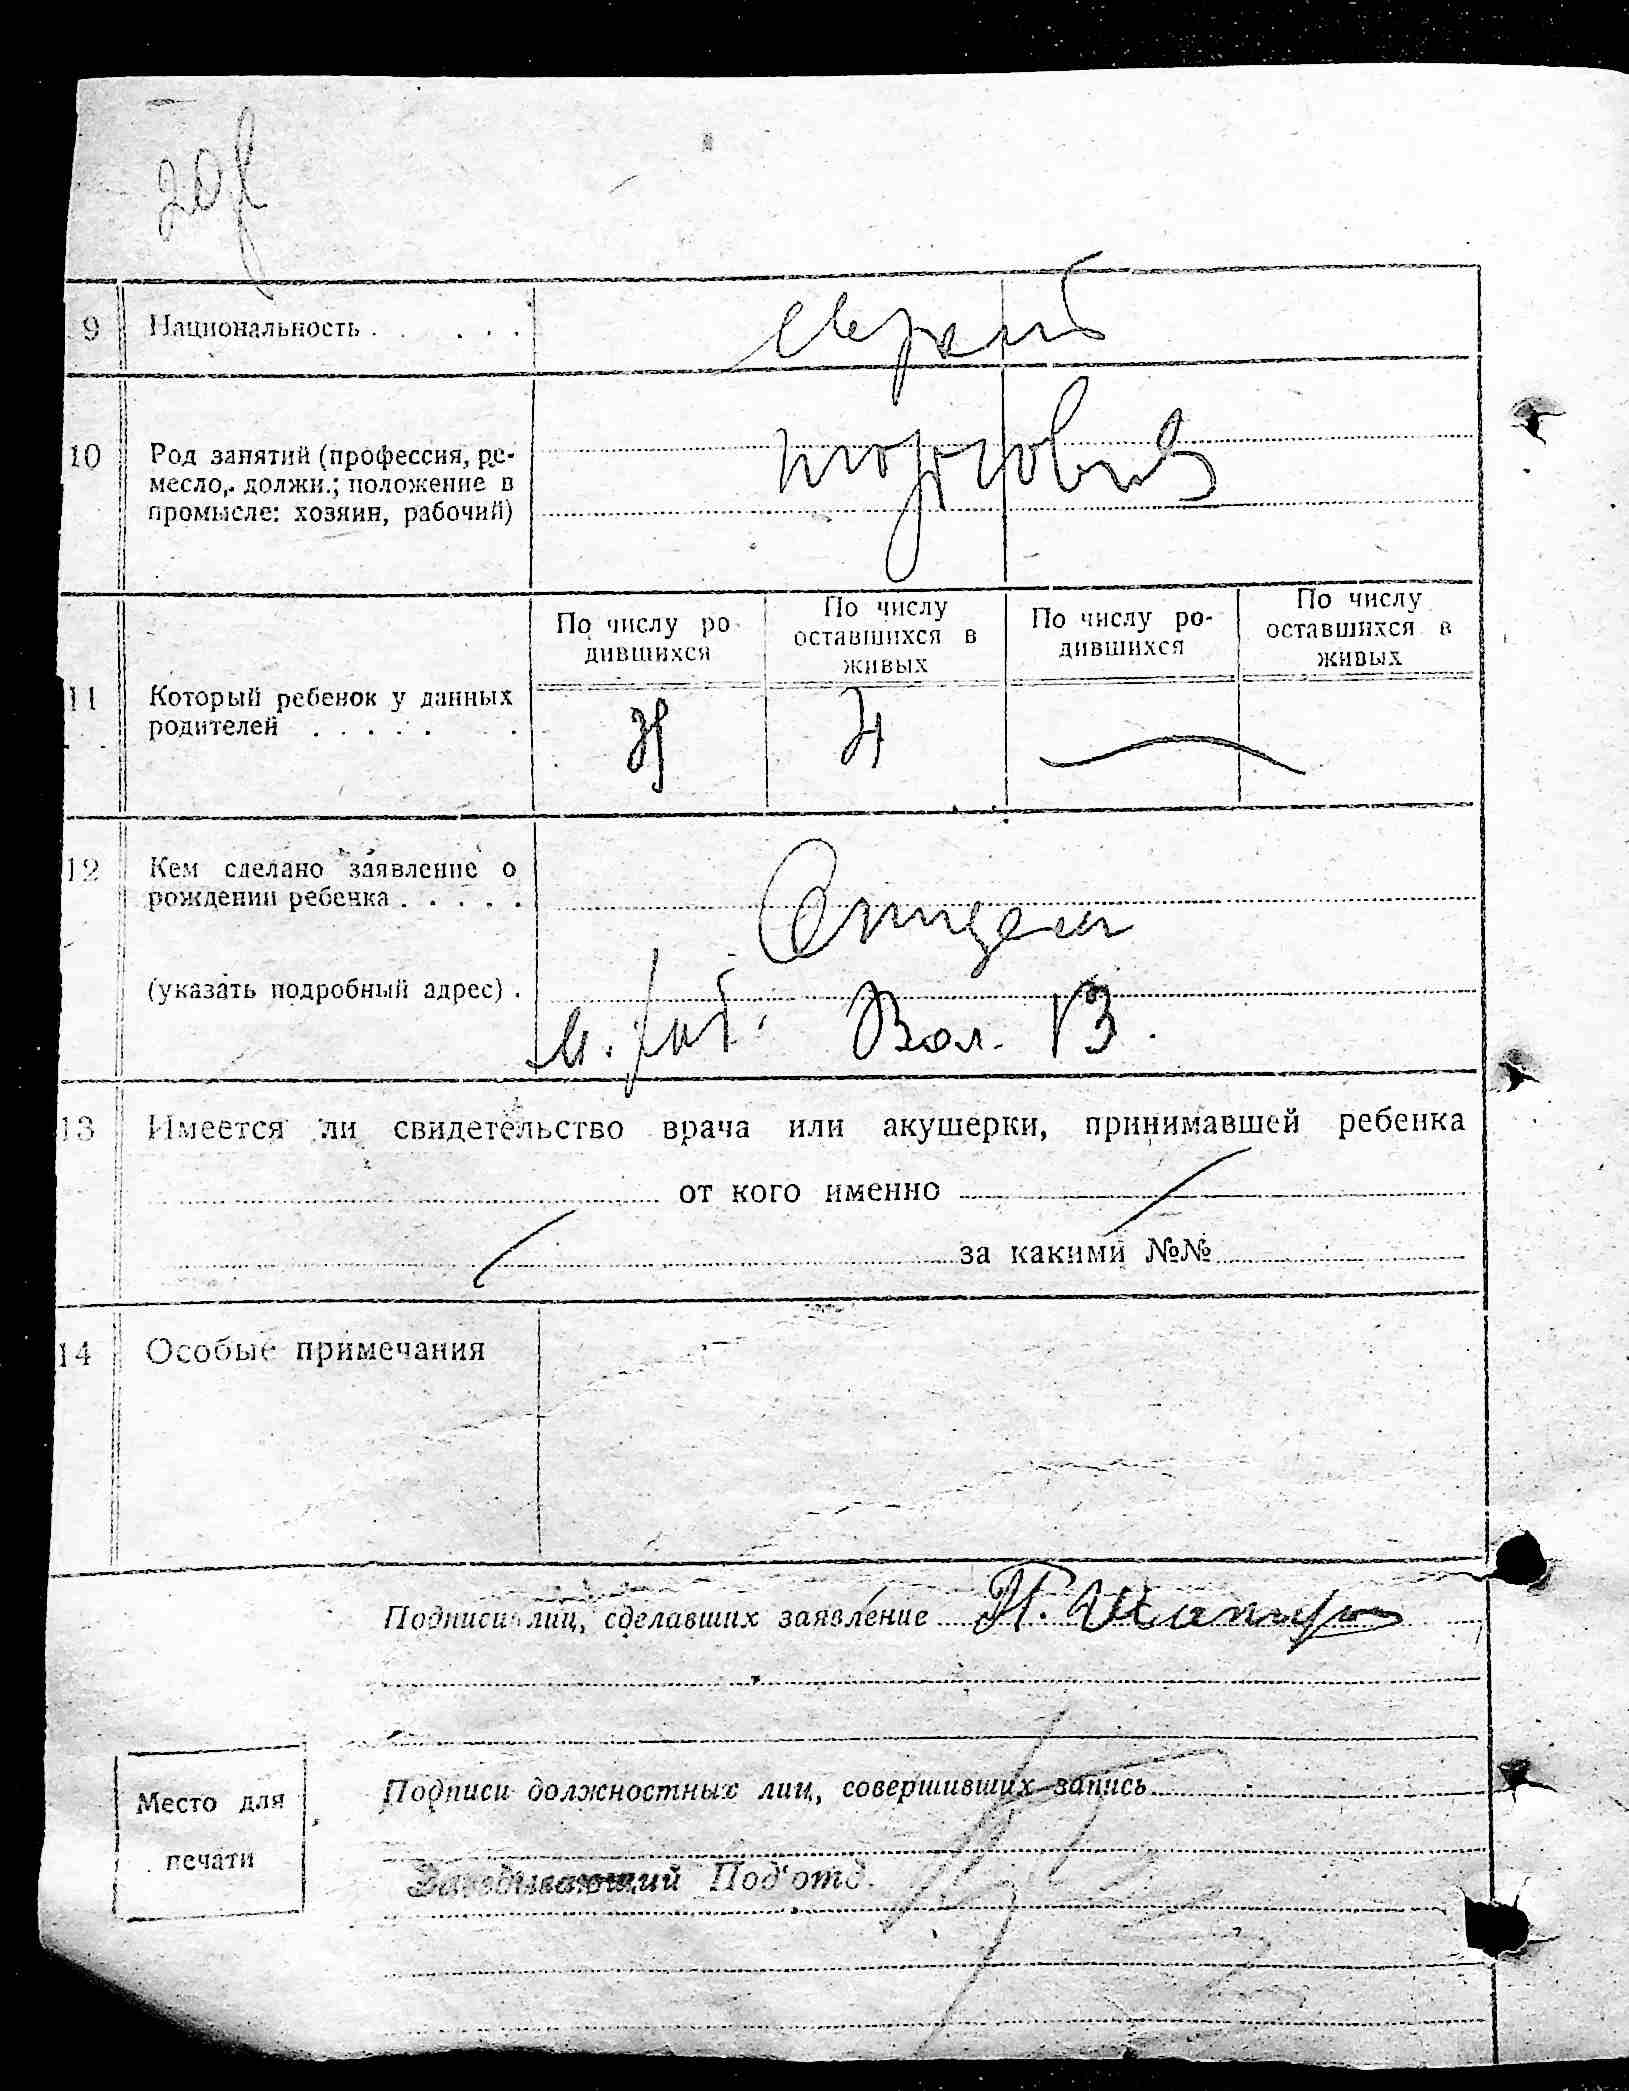 9 Национальность . . . . . . еврей
10 Род занятий (профессия, ре-
месло, должн.; положение в
промысле: хозяин, рабочий)
торговец
По числу ро-
дившихся
По числу
оставшихся в
живых
По числу ро-
дившихся
По числу
оставшихся в
живых
11 Который ребенок у данных
родителей . . . . . .
4
12 Кем сделано заявление о
рождении ребенка . . . . .
Отцем
(указать подробный адрес) .
Вол. 13.
13 Имеется ли свидетельство врача или акушерки, принимавшей ребенка
от кого именно
за какими №№
14 Особые примечания
Подписи лиц, сделавших заявление Н. Шапиро
Подписи должностных лиц, совершивших запись
Место для
печати
Заведывающий Под'отд.